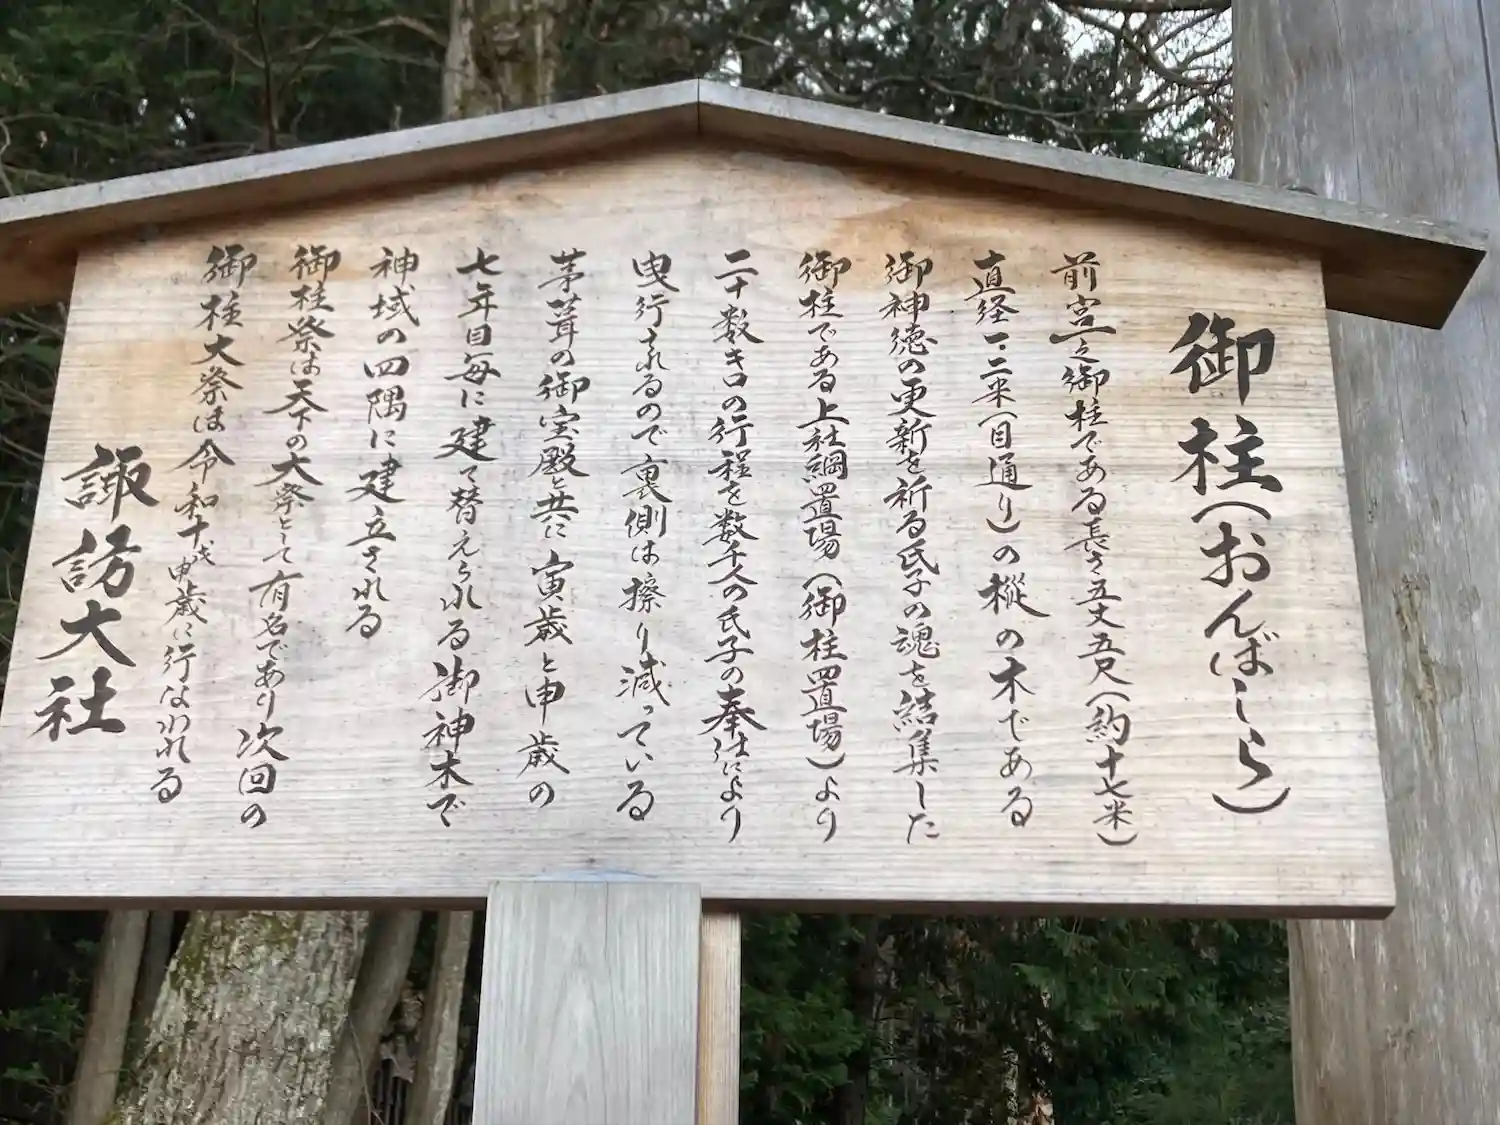 御柱(おんばしら)
前宮一之御柱である長さ五丈五尺(約十七米)
直経一・二米(目通り)の樅の木である
御神徳の更新を祈る氏子の魂を結集した
御柱である上社綱置場(御柱置場)より
二十数キロの行程を数千人の氏子の奉仕により
曳行されるので裏側は擦り減っている
茅葺の御宝殿と共に寅歳と申歳の
七年目毎に建て替えられる御神木で
神域の四隅に建立される
御柱祭は天下の大祭として有名であり次回の
御柱大祭は令和十戊申歳に行なわれる
諏訪大社